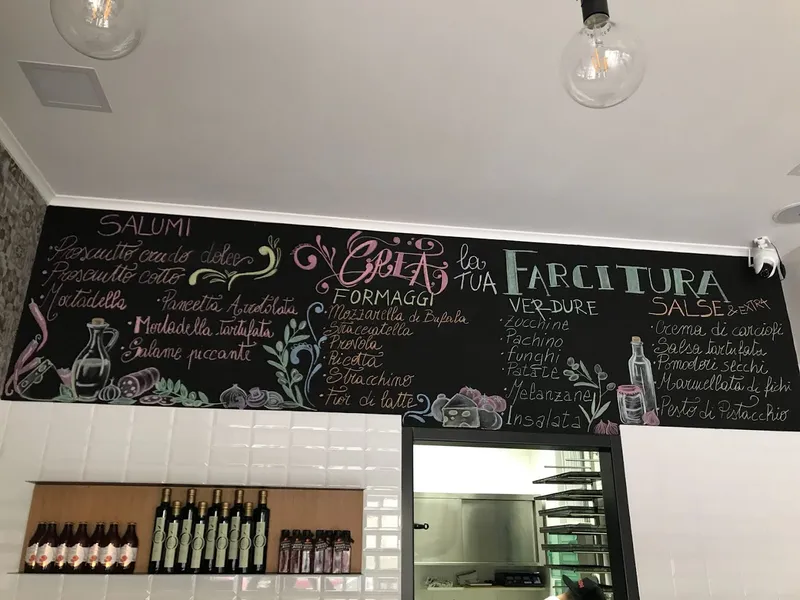 SALUMI
Prosciutto crudo dolce
Prosciutto cotto
Mortadella
Pancetta Arrotolata
Mortadella tartufata
Salame piccante
CREA la TUA FARCITURA
FORMAGGI
Mozzarella di Bufala
Stracciatella
Provola
Ricotta
Stracchino
Fior di latte
VERDURE
Zucchine
Pachino
Funghi
Patate
Melanzane
Insalata
SALSE & EXTRA
Crema di carciofi
Salsa tartufata
Pomodori secchi
Marmellata di fichi
Pesto di Pistacchio